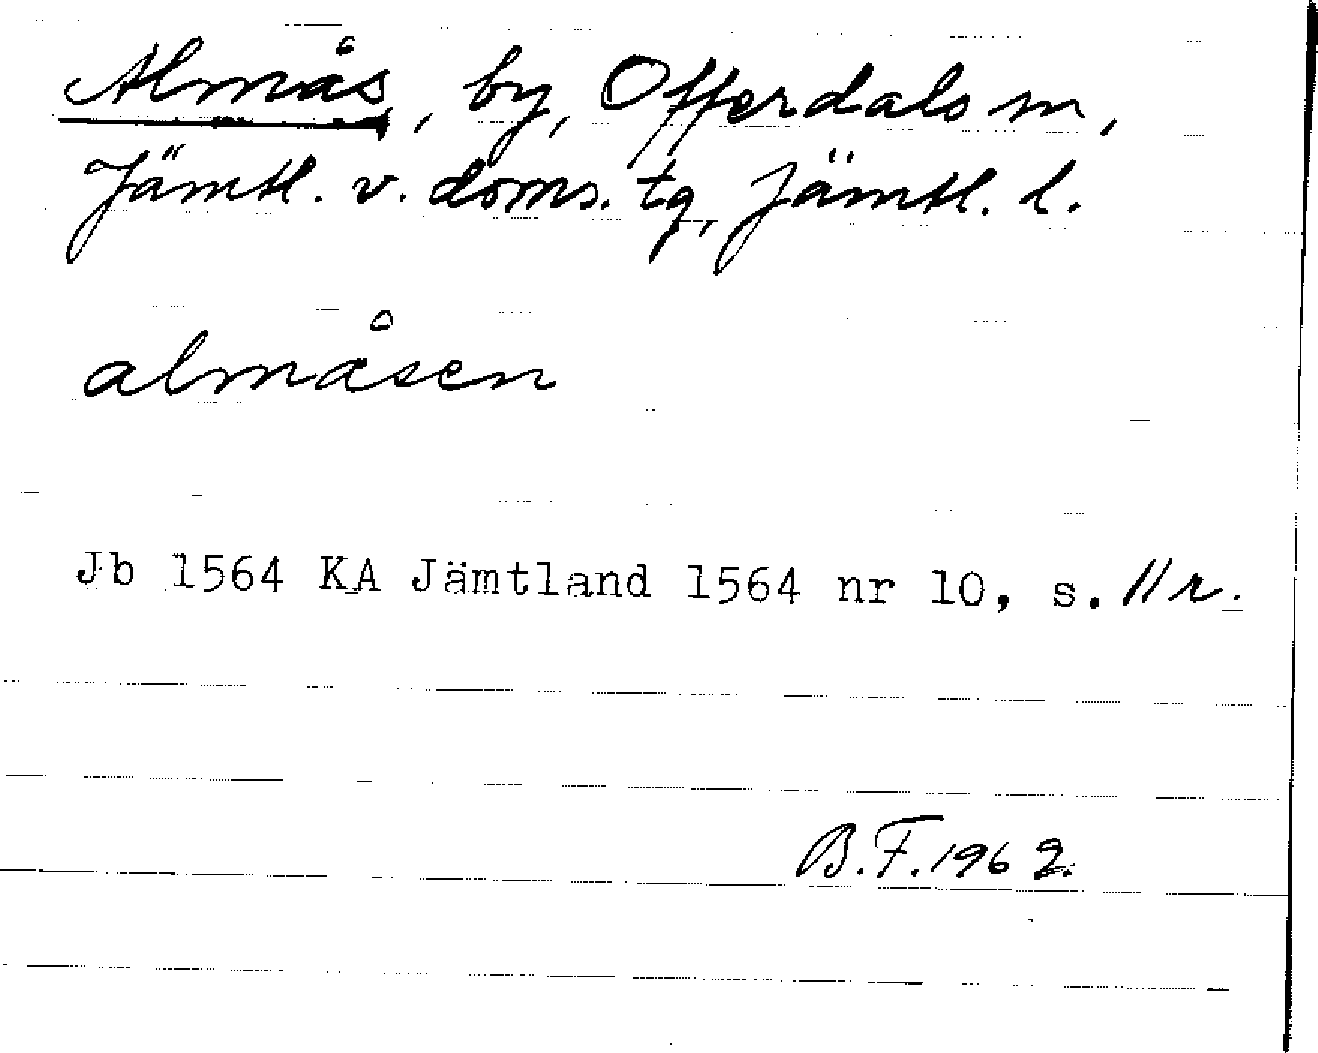 Almås, by, Offerdals sn,
Jämtl. v. doms. tg, Jämtl. l.
almåsen
Jb 1564 KA Jämtland 1564 nr 10, s. 11 r.
B.F. 1962.